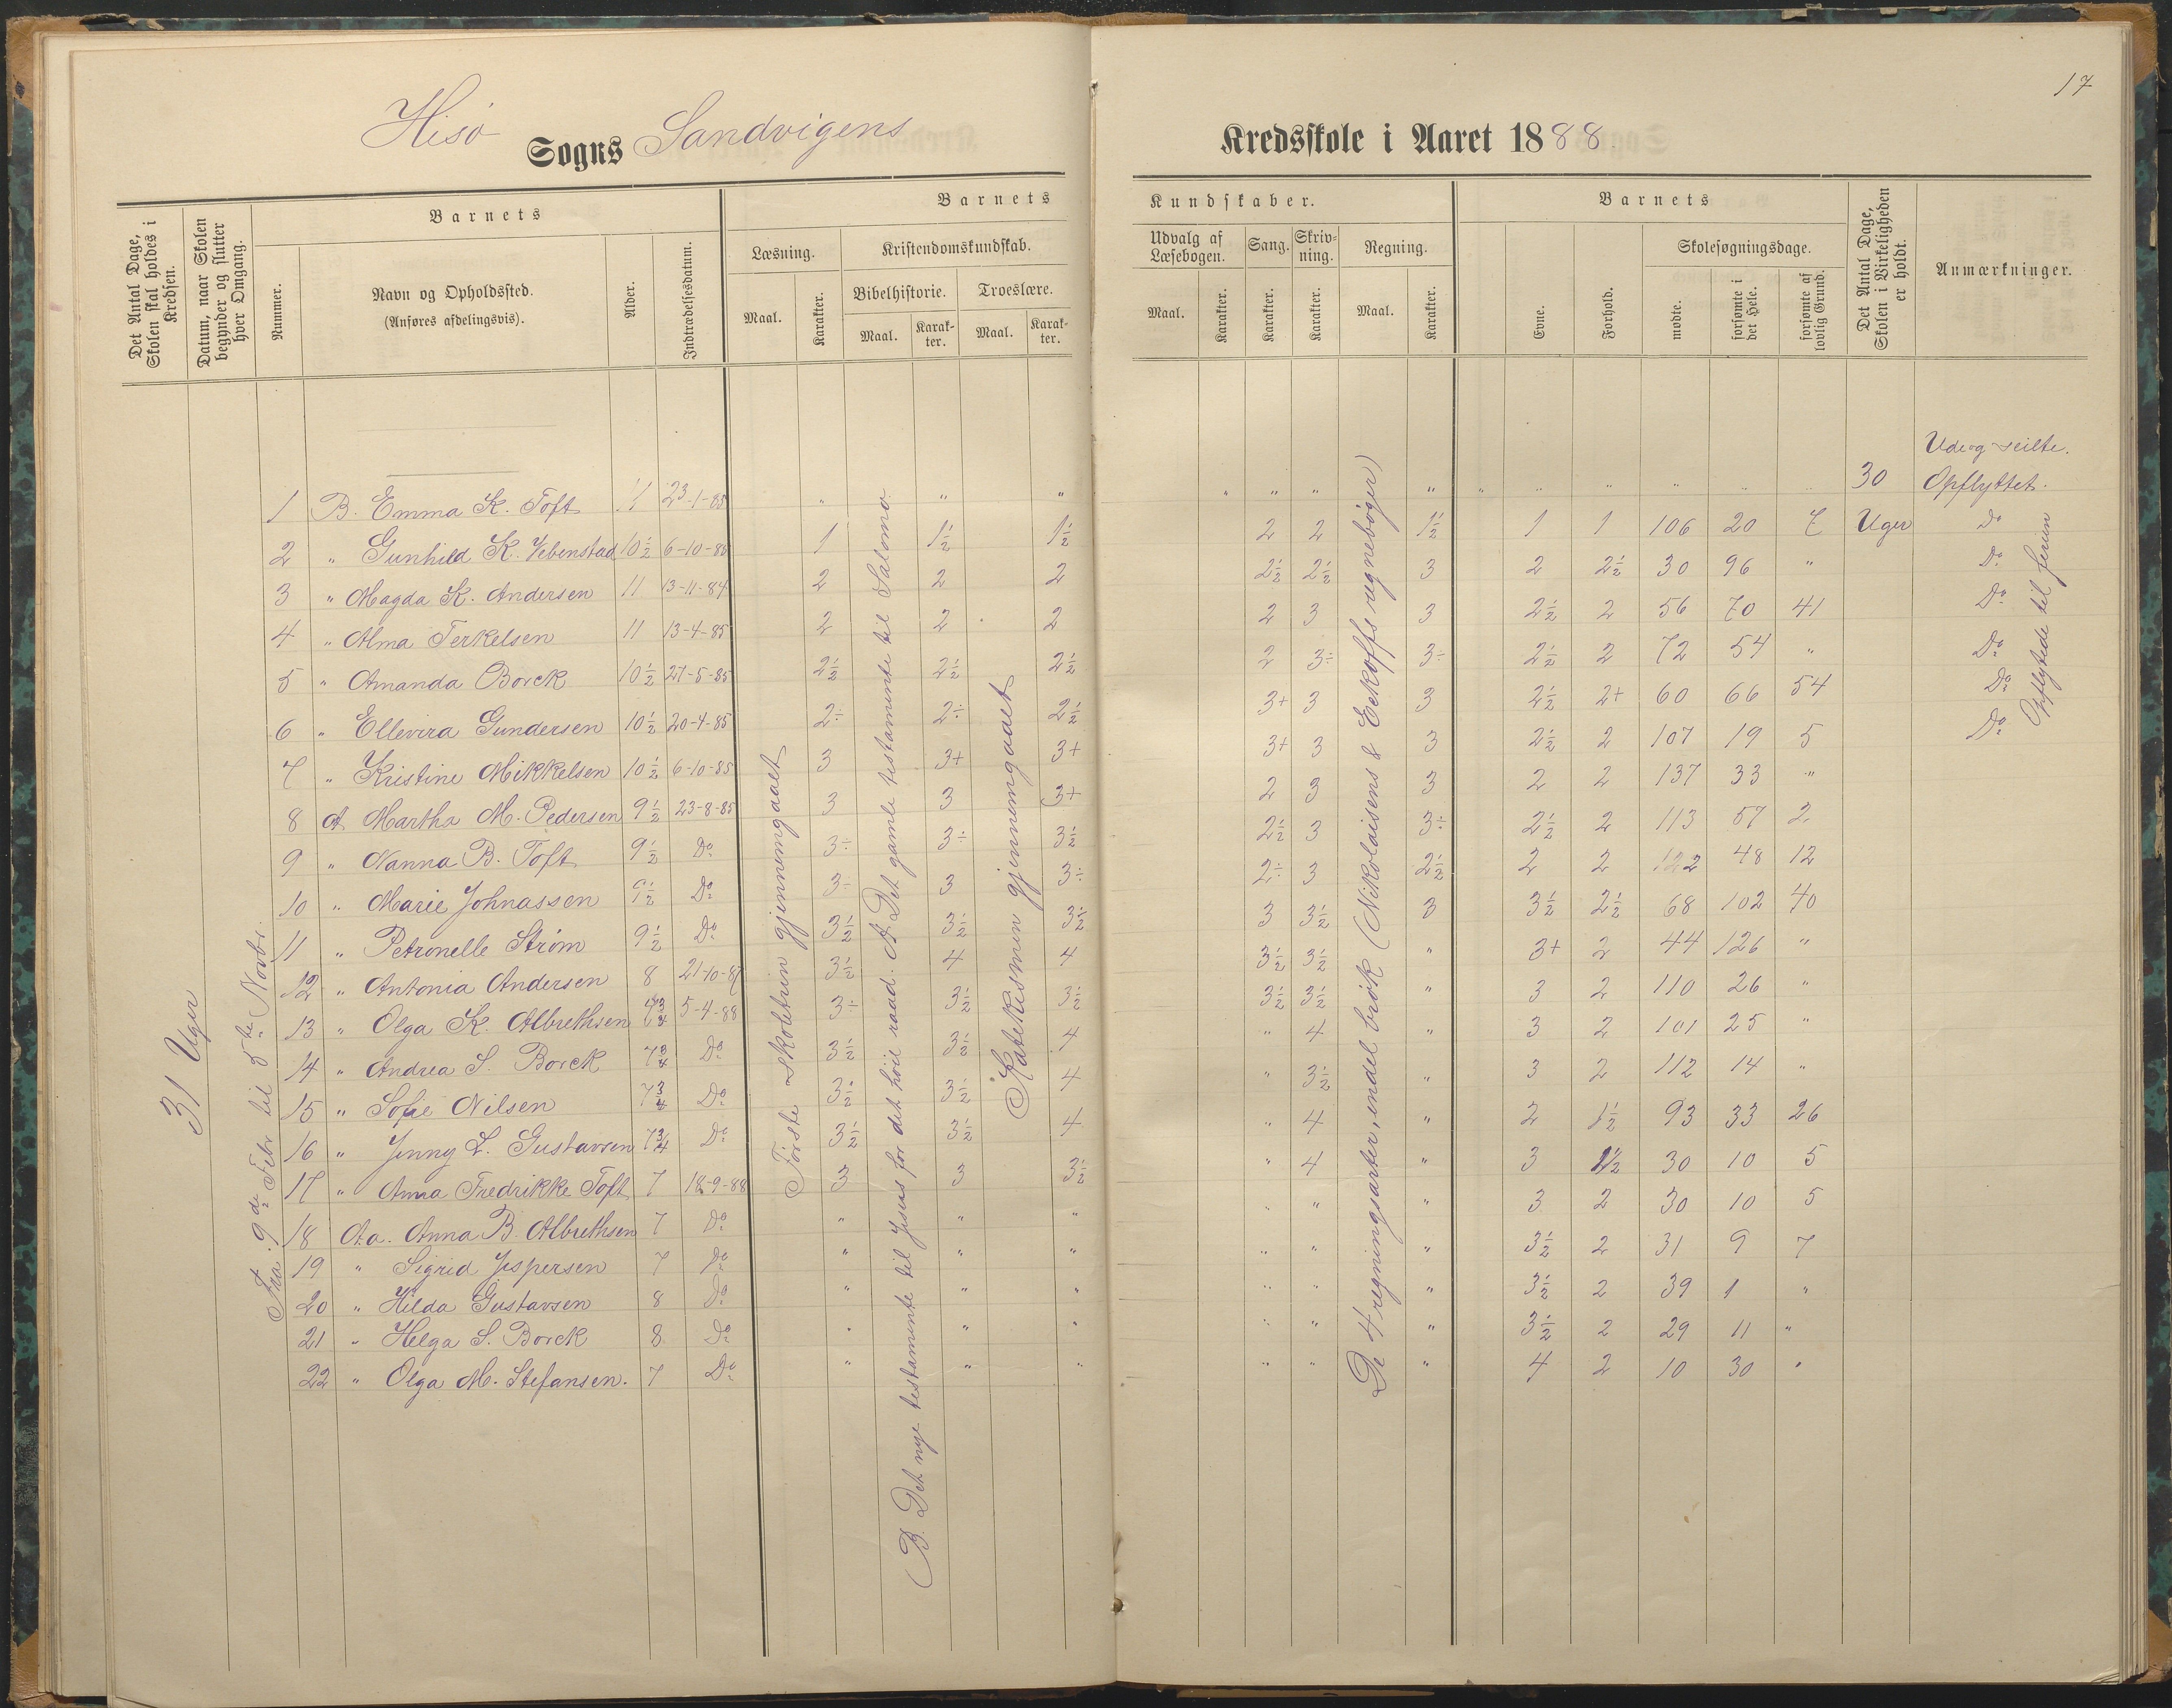 17
Hisö Sogns Sandvigens Kredsskole i Aaret 1888.
Det Antal Dage, Skolen skal holdes i Kredsen.
Datum, naar Skolen begynder og slutter hver Omgang.
Barnets
Nummer.
Navn og Opholdssted.
(Anføres afdelingsvis).
Alder.
Indtrædelsesdatum.
Barnets Kundskaber.
Læsning.
Maal.
Karakter.
Kristendomskundskab.
Bibelhistorie.
Maal.
Karakter.
Troeslære.
Maal.
Karakter.
Udvalg af Læsebogen.
Maal.
Karakter.
Sang.
Karakter.
Skrivning.
Karakter.
Regning.
Maal.
Karakter.
Barnets
Evne.
Forhold.
Skolesøgningsdage.
mødte.
forsømte i det Hele.
forsømte af lovlig Grund.
Det Antal Dage, Skolen i Virkeligheden er holdt.
Anmærkninger.
31 Uger
Fra 9de Febr til 5te Novbr.
Første skoletrin gjennemgaaet
B. Det nye testamente til Jesus for det høie raad. A. Det gamle testamente til Salomo
Katekismen gjennemgaaet
De 4 regningsarter, endel brøk (Nikolaisens & Eekoffs regnebøger)
30 Uger
Udvog seilte.
Opflyttede til ferien
1 B. Emma K. Toft 11 23-1-85 " " " " " " " " " " " " Opflyttet.
2 " Gunhild K. Vebenstad 10½ 6-10-85 1 1½ 1½ 2 2 1½ 1 1 106 20 7 Do
3 " Magda K. Andersen 11 13-11-84 2 2 2 2½ 2½ 3 2 2½ 30 96 " Do
4 " Alma Terkelsen 11 13-4-85 2 2 2 2 3 3 2½ 2 56 70 41 Do
5 " Amanda Borck 10½ 27-5-85 2½ 2½ 2½ 2 3÷ 3÷ 2½ 2 72 54 " Do
6 " Ellevira Gundersen 10½ 20-4-85 2÷ 2÷ 2½ 3+ 3 3 2½ 2+ 60 66 54 Do
7 " Kristine Mikkelsen 10½ 6-10-85 3 3+ 3+ 3+ 3 3 2½ 2 107 19 5 Do
8 A Martha M. Pedersen 9½ 23-8-85 3 3 3+ 2 3 3 2 2 137 33 "
9 " Nanna B. Toft 9½ Do 3÷ 3÷ 3½ 2½ 3 3÷ 2½ 2 113 57 2
10 " Marie Johnassen 9½ Do 3÷ 3 3÷ 2÷ 3 2½ 2 2 122 48 12
11 " Petronelle Strøm 9½ Do 3½ 3½ 3½ 3 3½ 3 3½ 2½ 68 102 40
12 " Antonia Andersen 8 21-10-87 3½ 4 4 3½ 3½ " 3+ 2 44 126 "
13 " Olga K. Albrethsen 7¾ 5-4-88 3÷ 3½ 3½ 3½ 3½ " 3 2 110 26 "
14 " Andrea S. Borck 7¾ Do 3½ 3½ 4 " 4 " 3 2 101 25 "
15 " Sofie Nilsen 7¾ Do 3½ 3½ 4 " 3½ " 3 2 112 14 "
16 " Jenny L. Gustavsen 7¾ Do 3½ 3½ 4 " 4 " 2 1½ 93 33 26
17 " Anna Fredrikke Toft 7 18-9-88 3 3 3½ " 4 " 3 1½ 30 10 5
18 Aa. Anna B. Albrethsen 7 Do " " " " " " 3 2 30 10 5
19 " Sigrid Jespersen 7 Do " " " " " " 3½ 2 31 9 7
20 " Hilda Gustavsen 8 Do " " " " " " 3½ 2 39 1 "
21 " Helga S. Borck 8 Do " " " " " " 3½ 2 29 11 "
22 " Olga M. Stefansen. 7 Do " " " " " " 4 2 10 30 "